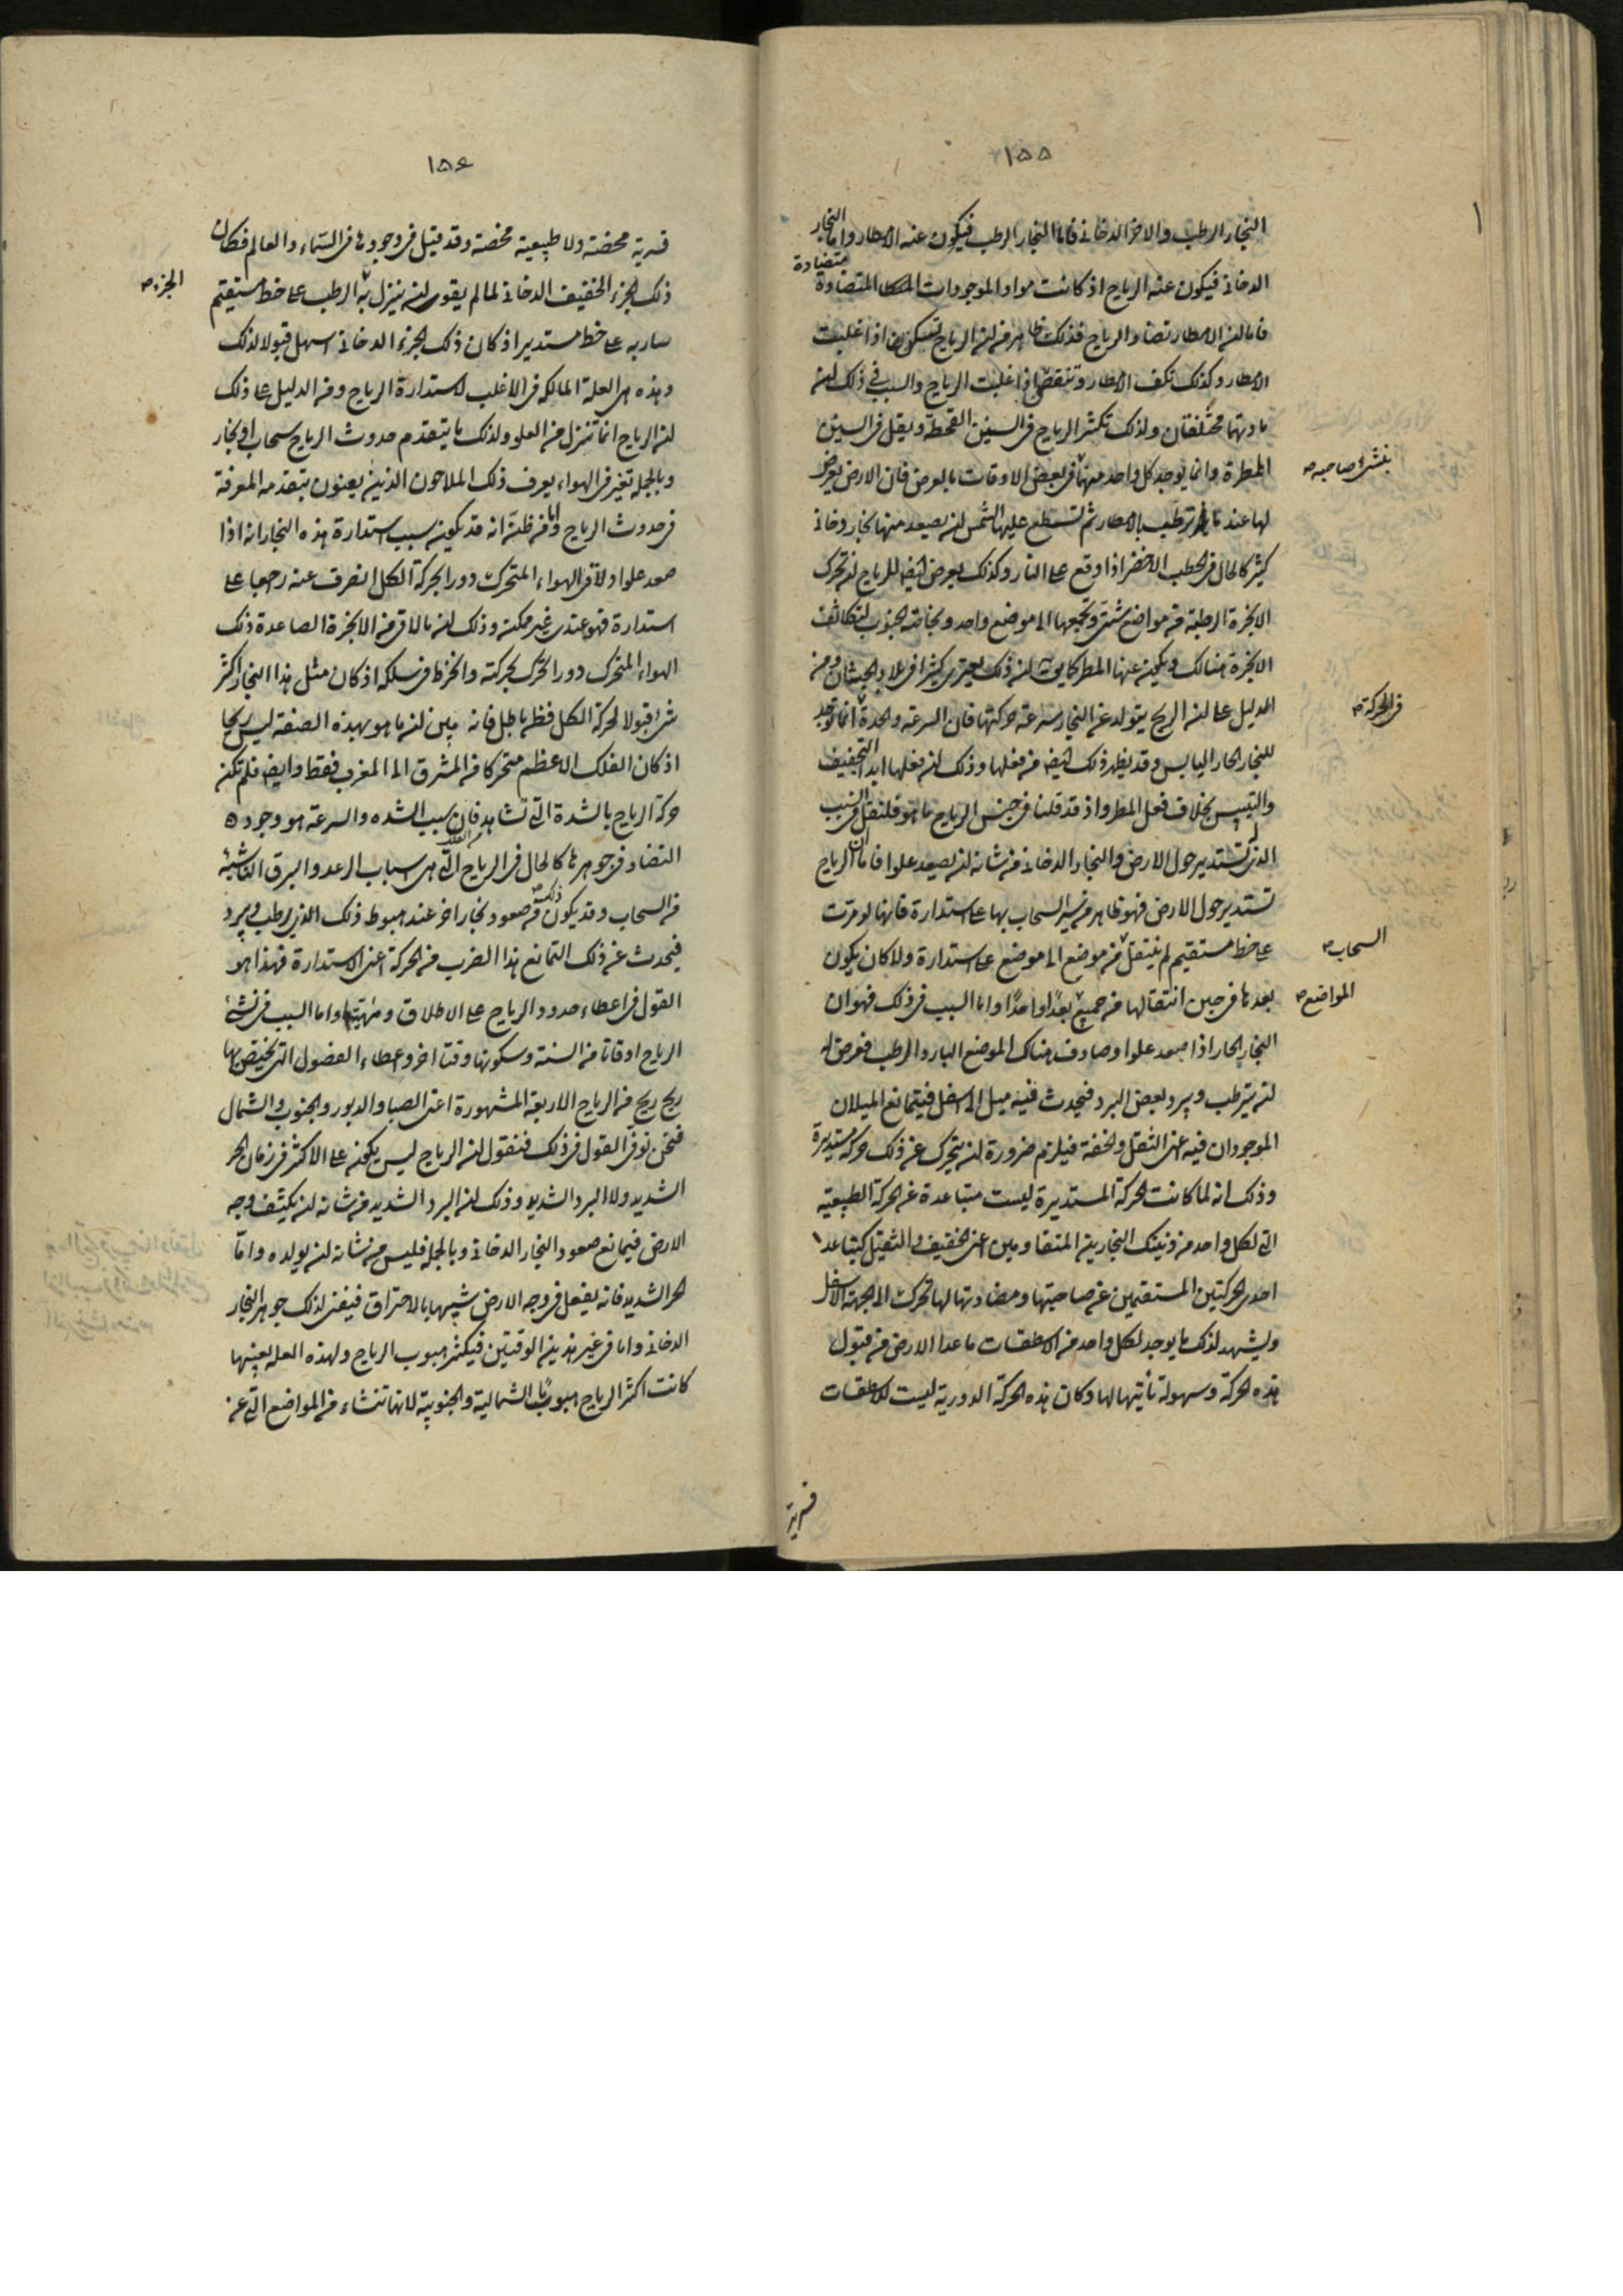 ١٥٥
البخار الرطب والاخر الدخانى فاما البخار الرطب فيكون عنه الامطار واما البخار
الدخانى فيكون عنه الرياح اذ كانت مواد الموجودات المتضادة متضادة
فاما ان الامطار تضاد الرياح فذلك ظاهر من ان الرياح تسكن اذا غلبت
الامطار وكذلك تكف الامطار وتنقص اذا غلبت الرياح والسبب في ذلك ان
مادتهما مختلفتان ولذلك تكثر الرياح فى السنين القحطة ويقل فى السنين
المطرة وانما يوجد كل واحد منهما فى بعض الاوقات بالعرض فان الارض يعرض
بنشئ صاحبه
لها عند ما ترطب بالامطار ثم تسطع عليها الشمس ان يصعد منها بخار دخانى
كثير كالحال فى الحطب الاخضر اذا وقع على النار وكذلك يعرض ايضا للرياح ان تحرك
الابخرة الرطبة من مواضع شتى وتجمعها الى موضع واحد وبخاصة الجنوب لتكاثف
الابخرة هنالك ويكون عنها المطر كما يق ان ذلك يعترى كثيرا فى بلاد الحبشان ومن
الدليل على ان الريح يتولد عن البخار سرعة حركتها فان السرعة والحدة انما توجد
فى الحركة
للبخار الحار اليابس وقد يظهر ذلك ايضا من فعلها وذلك ان فعلها ابدا التجفيف
والتيبيس بخلاف فعل المطر واذ قد قلنا فى جنس الرياح ما هو فلنقل فى السبب
الذى له تستدير حول الارض والبخار الدخانى من شانه ان يصعد علوا فاما ان الرياح
تستدير حول الارض فهو ظاهر من سير السحاب بها على استدارة فانها لو مرت
على خط مستقيم لم ينتقل من موضع الى موضع على استدارة ولا كان يكون
السحاب
بعدها فى حين انتقالها من جميع بعدا واحدا واما السبب فى ذلك فهو ان
المواضع
البخار الحار اذا صعد علوا وصادف هناك الموضع البارد الرطب فعرض له
ان يترطب ويبرد بعض البرد فيحدث فيه ميل الى اسفل فيتمانع الميلان
الموجودان فيه اعنى الثقل والخفة فيلزم ضرورة ان يتحرك عن ذلك حركة مستديرة
وذلك انه لما كانت الحركة المستديرة ليست متباعدة عن الحركة الطبيعية
التى لكل واحد من ذينك البخارين المتقاومين اعنى الخفيف والثقيل كتباعد
احدى الحركتين المستقيمين عن صاحبتها ومضادتها لها تحرك الى الجهة الاسفل
ويشهد لذلك ما يوجد لكل واحد من الاسطقسات ما عدا الارض من قبول
هذه الحركة وسهولة تأتيها لها وكان هذه الحركة الدورية ليست للاسطقسات
قسرية
١٥٦
قسرية محضة ولا طبيعية محضة وقد قيل فى وجودها فى السماء والعالم فكان
ذلك الجزء الخفيف الدخانى لما لم يقو ان ينزل به الرطب على خط مستقيم
الجزء
سار به على خط مستدير اذ كان ذلك الجزء الدخانى اسهل قبولا لذلك
وهذه هى العلة المالكة فى الاغلب لاستدارة الرياح ومن الدليل على ذلك
ان الرياح انما تنزل من العلو ولذلك ما يتقدم حدوث الرياح سحاب او بخار
وبالجملة تغير فى الهواء يعرف ذلك الملاحون الذين يعنون بتقدمه المعرفة
فى حدوث الرياح واما من ظن انه قد يكون سبب استدارة هذه البخار انه اذا
صعد علوا ولاقى الهواء المتحرك دورا بحركة الكل انصرف عنه رجعا على
استدارة فهو عندى غير ممكن وذلك ان ما لاقى من الابخرة الصاعدة ذلك
الهواء المتحرك دورا تحرك بحركته وانخرط فى سلكه اذ كان مثل هذا البخار اكثر
شئ قبولا لحركة الكل فظ باطل فانه بين ان ما هو بهذه الصفة ليس ريحا
اذ كان الفلك الاعظم متحركا من المشرق الى المغرب فقط وايضا فلم تكن
حركة الرياح بالشدة التى تشاهد فان سبب الشده والسرعة هو وجود
التضاد فى جوهرها كالحال فى الرياح التى هى سباب الرعد والبرق الناشئة
من السحاب وقد يكون ذلك من صعود بخار اخر عند هبوط ذلك الذى يرطب ويبرد
فيحدث عن ذلك التمانع هذا الضرب من الحركة اعنى الاستدارة فهذا هو
القول فى اعطاء حدود الرياح على الاطلاق وماهيتها واما السبب فى نشئ
الرياح اوقاتا من السنة وسكونها وقتا اخر واعطاء الفصول التى يختص بها
ريح ريح من الرياح الاربعة المشهورة اعنى الصبا والدبور والجنوب والشمال
فنحن نوفى القول فى ذلك فنقول ان الرياح ليس يمكن على الاكثر فى زمان الحر
الشديد ولا البرد الشديد وذلك ان البرد الشديد من شانه ان يكثف وجه
الارض فيمانع صعود البخار الدخانى وبالجملة فليس من شانه ان يولده واما
الحر الشديد فانه يفعل فى وجه الارض شبيها بالاحتراق فيفنى لذلك جوهر البخار
الدخانى واما فى غير هذين الوقتين فيكثر هبوب الرياح ولهذه العلة بعينها
كانت اكثر الرياح هبوبا الشمالية والجنوبية لانها تنشاء من المواضع التى عن